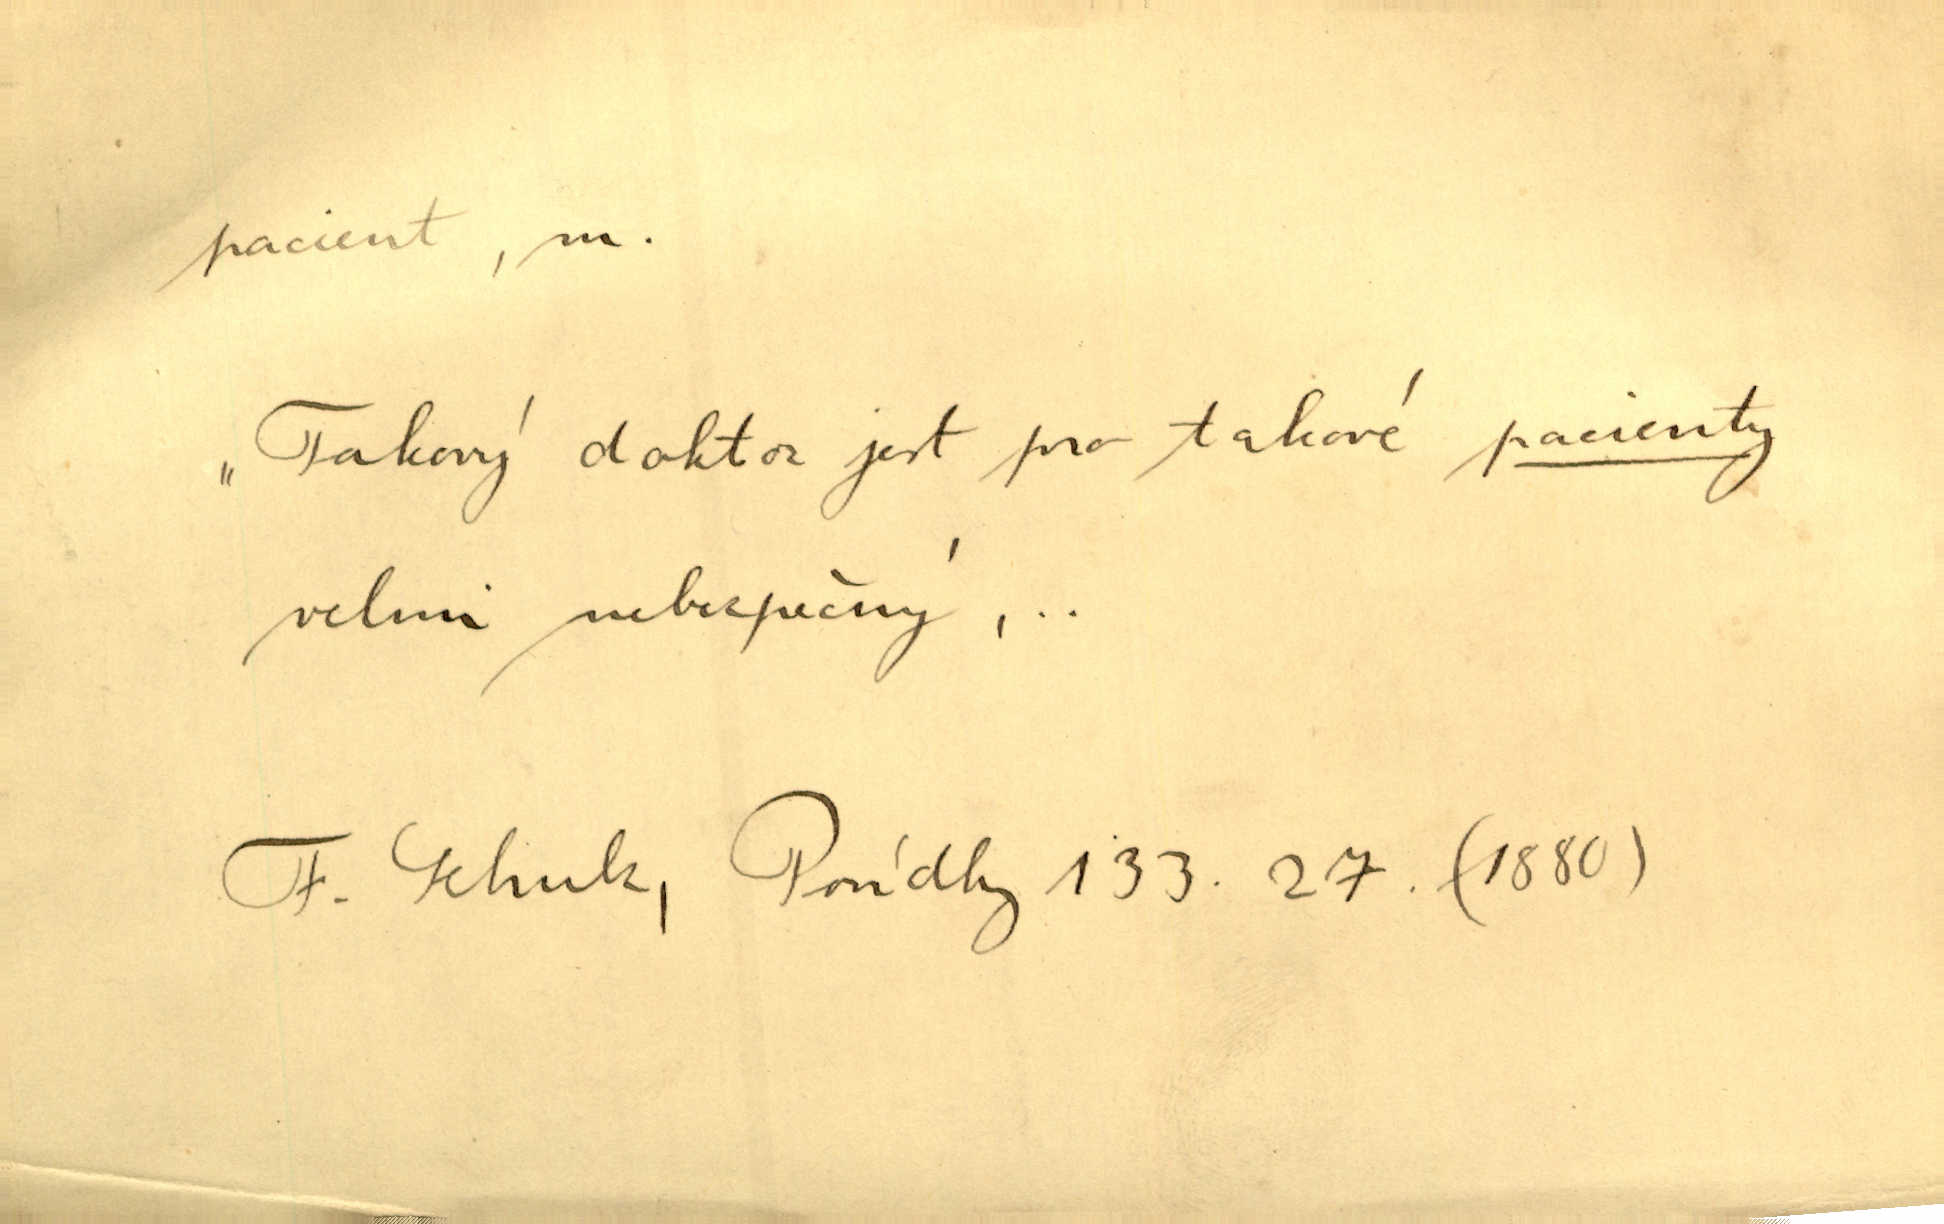 pacient, m.
„Takový doktor jest pro takové pacienty
velmi nebezpečný, ..
F. Schulz, Povídky 133. 27. (1880)